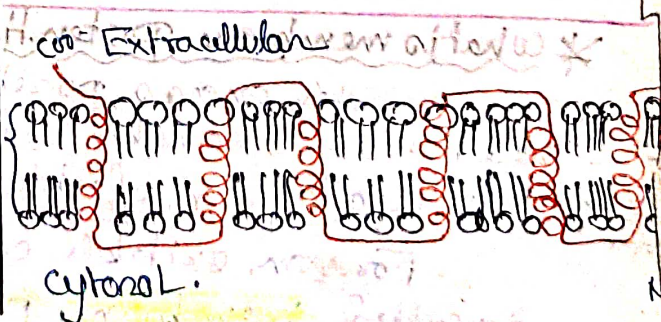 coo- Extracellular
cytosol.
N